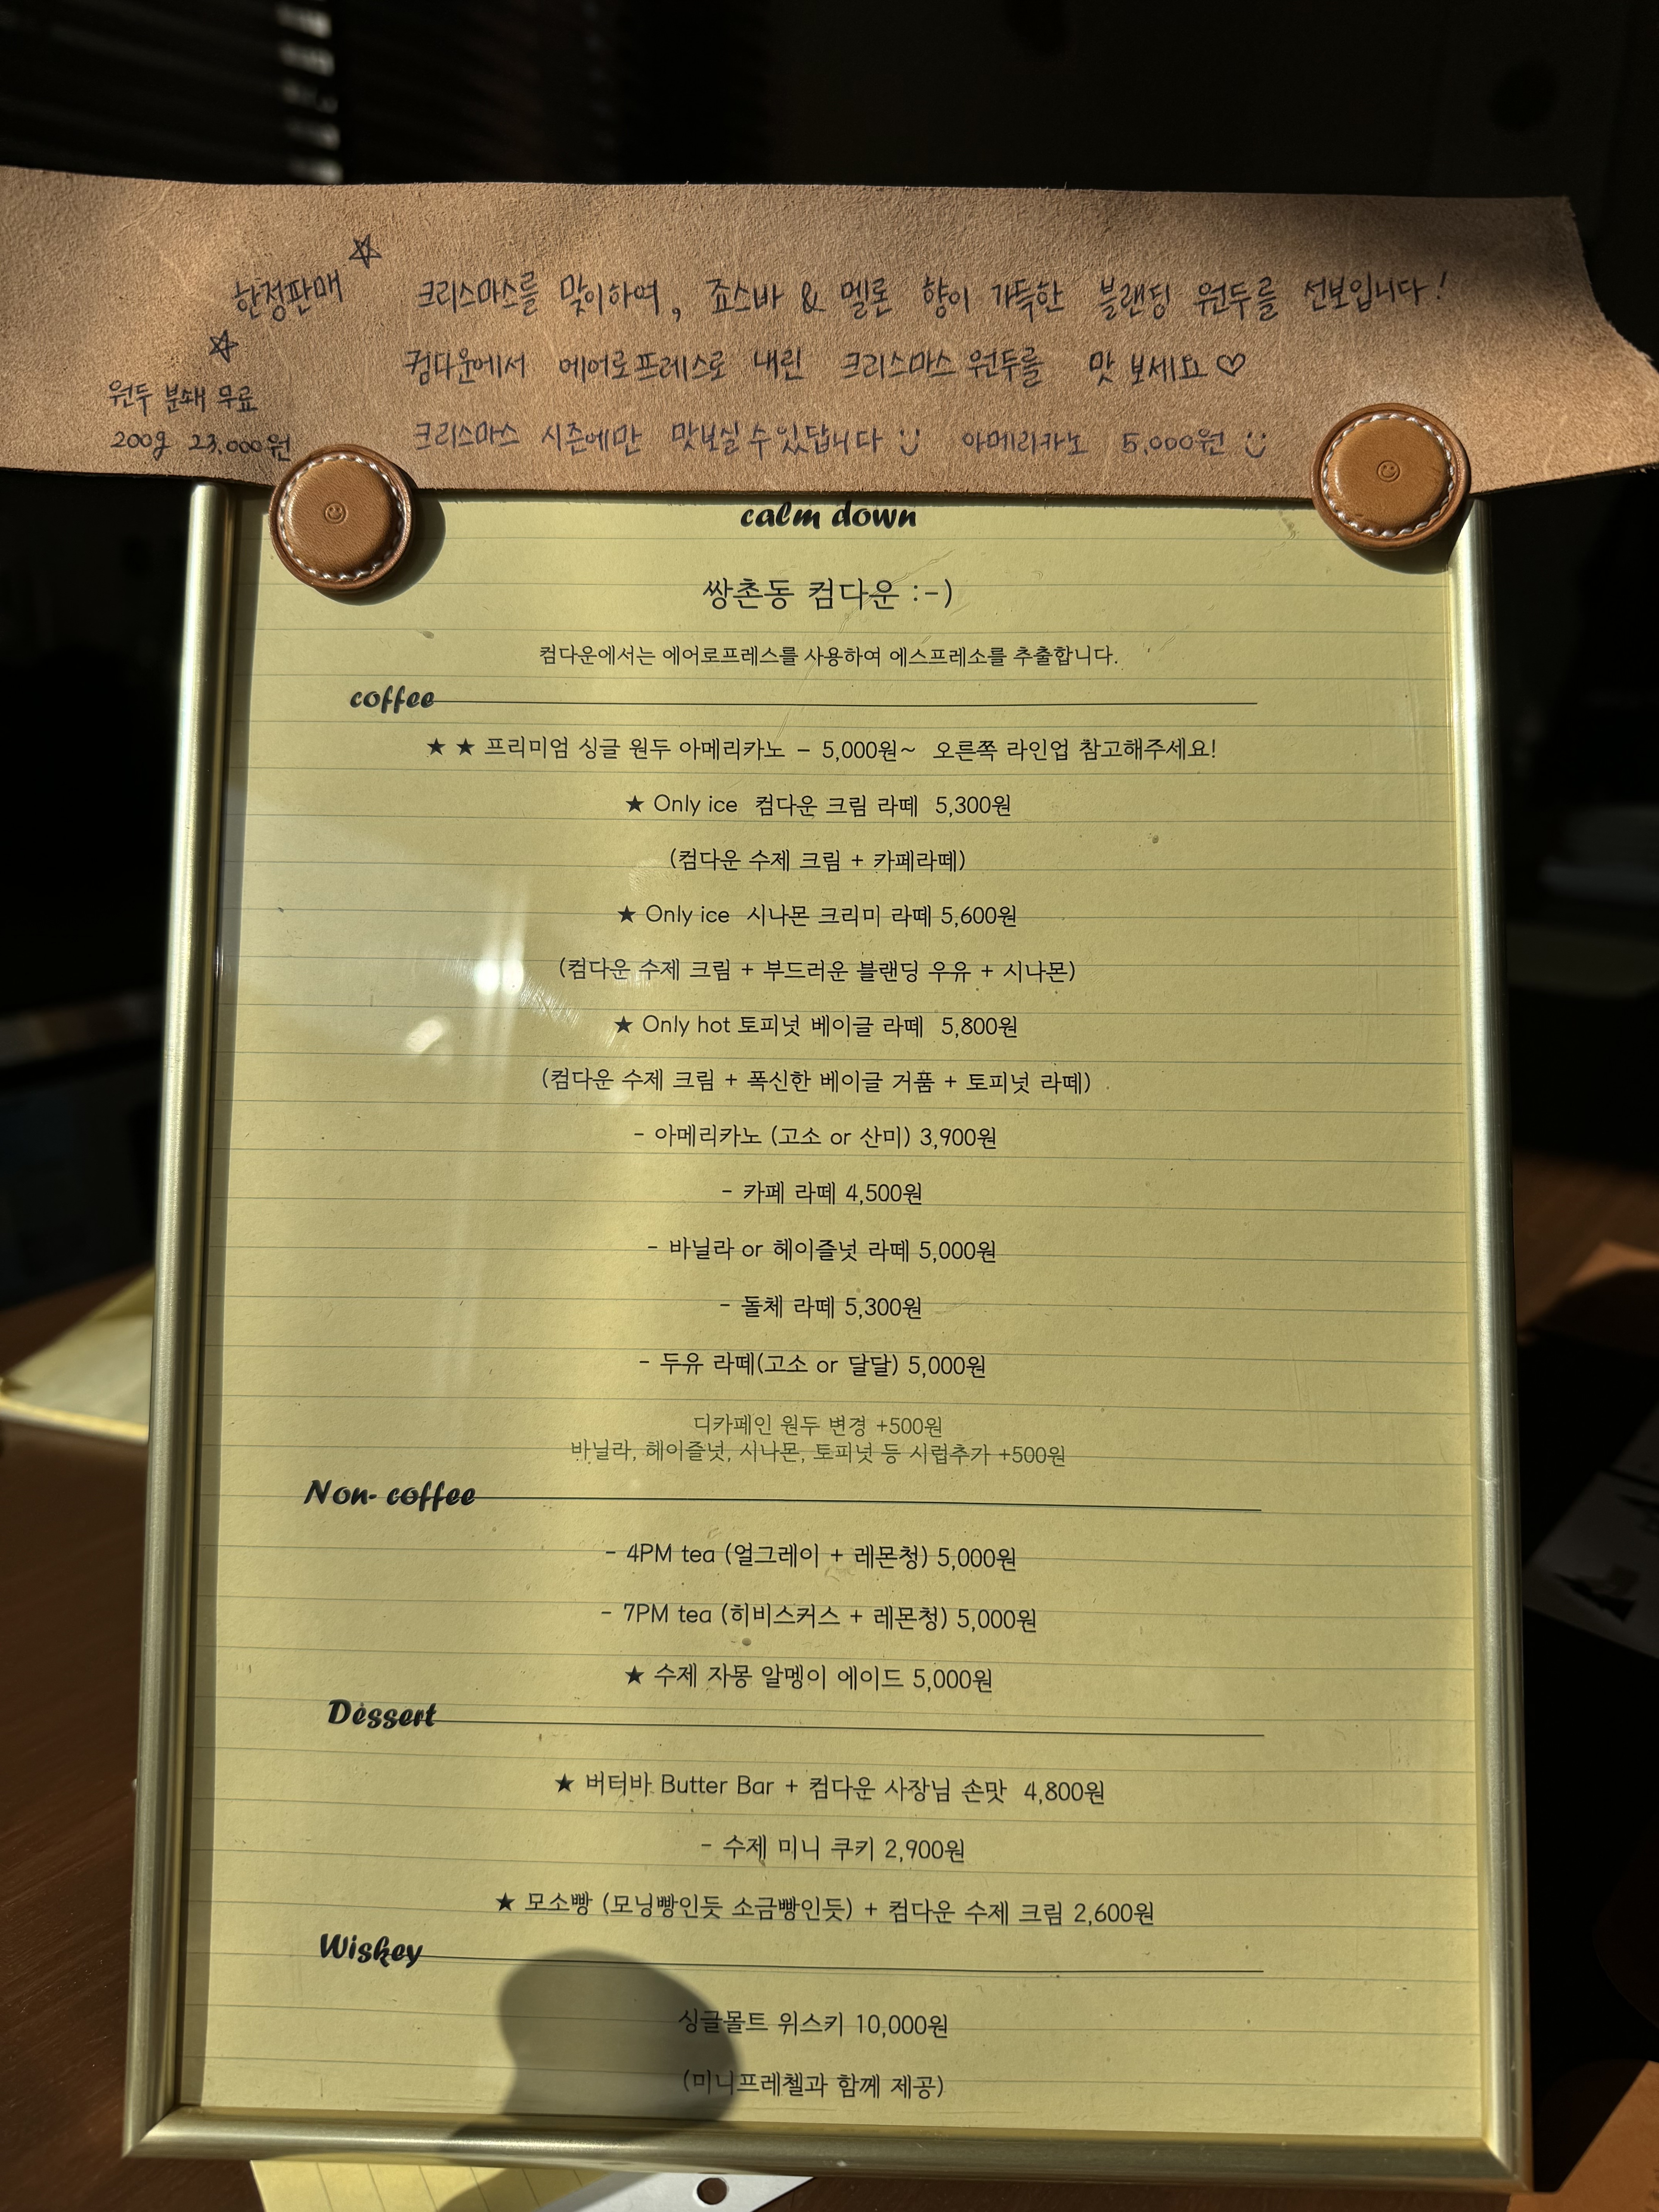 한정판매
크리스마스를 맞이하여, 죠스바 & 멜론 향이 가득한 블랜딩 원두를 선보입니다!
컴다운에서 에어로프레스로 내린 크리스마스 원두를 맛 보세요♡
원두 분쇄 무료
200g 23,000원
크리스마스 시즌에만 맛보실 수 있답니다 :) 아메리카노 5,000원 :)
calm down
쌍촌동 컴다운 :-)
컴다운에서는 에어로프레스를 사용하여 에스프레소를 추출합니다.
coffee
★ ★ 프리미엄 싱글 원두 아메리카노 - 5,000원~ 오른쪽 라인업 참고해주세요!
★ Only ice 컴다운 크림 라떼 5,300원
(컴다운 수제 크림 + 카페라떼)
★ Only ice 시나몬 크리미 라떼 5,600원
(컴다운 수제 크림 + 부드러운 블랜딩 우유 + 시나몬)
★ Only hot 토피넛 베이글 라떼 5,800원
(컴다운 수제 크림 + 폭신한 베이글 거품 + 토피넛 라떼)
- 아메리카노 (고소 or 산미) 3,900원
- 카페 라떼 4,500원
- 바닐라 or 헤이즐넛 라떼 5,000원
- 돌체 라떼 5,300원
- 두유 라떼(고소 or 달달) 5,000원
디카페인 원두 변경 +500원
바닐라, 헤이즐넛, 시나몬, 토피넛 등 시럽추가 +500원
Non- coffee
- 4PM tea (얼그레이 + 레몬청) 5,000원
- 7PM tea (히비스커스 + 레몬청) 5,000원
★ 수제 자몽 알멩이 에이드 5,000원
Dessert
★ 버터바 Butter Bar + 컴다운 사장님 손맛 4,800원
- 수제 미니 쿠키 2,900원
★ 모소빵 (모닝빵인듯 소금빵인듯) + 컴다운 수제 크림 2,600원
Wiskey
싱글몰트 위스키 10,000원
(미니프레첼과 함께 제공)